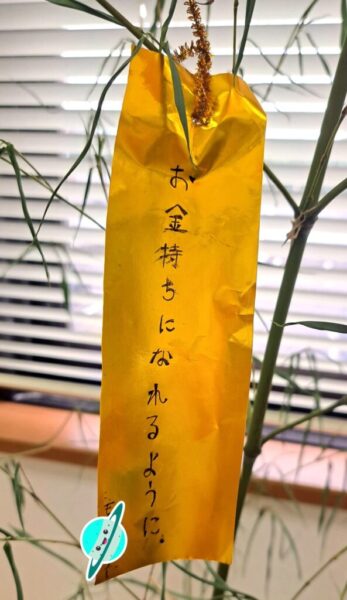 お金持ちになれるように。